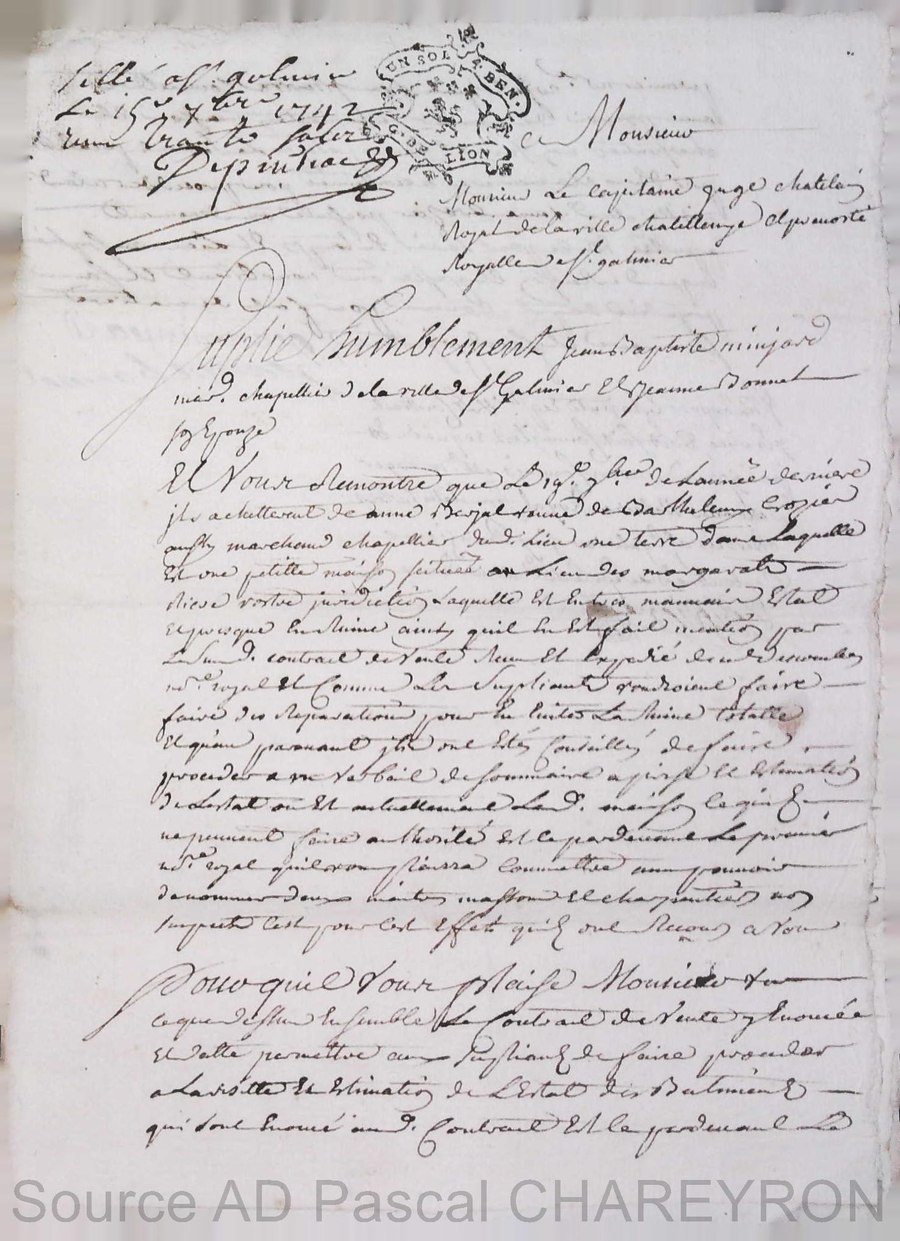 sellé a St. galmier
Le 15e. 7bre 1742
reçu trante
UN SOL
G. DE LION
A Monsieur
Monsieur Le Capitaine juge chatelain
Royal de la ville chatellenye et prevosté
Royalle de St. galmier
Suplie humblement Jean Baptiste minjard
md. chapellier de la ville de St. Galmier Et Jeanne Bonnet
son Epouze
Et Vous Remontre que Le 19e. 9bre de L'année derniere
jls achetterent de anne Berjat vonne de Barthelemy Crozier
aussy marchand chapellier dud. Lieu une terre dans Laquelle
Est une petite maison scituée au Lieu des margarats
Riere vostre juridiction Laquelle Est En tres mauvais Estat
Et presque En Ruine ainsy quil En Est fait mention par
Le susd. contrait de Vente Receu Et Expedié
no.re royal Et Comme Les Supliants voudroient faire
faire des Reparations pour En Eviter La Ruine totalle
Et qu'au paravant jls ont Estés Conseillés de faire
proceder a un Verbail de sommaire aprise Et Estimation
de L'estat ou Est actuellement Lad. maison ce qu'ils
ne peuvent faire authorité Et ce pardevant Le premier
no.re royal quil vous plaira Commettre avec pouvoir
de nommer deux maitres massons Et charpentiers non
suspects C'est pour cet Effet qu'ils ont Recours a Vous
Pour qu'il Vous plaise Monsieur Vu
ce que dessus Ensemble Le Contrait de Vente y Enoncée
Et datté permettre aux supliants de faire proceder
a La visitte Et Estimation de L'Estat des Batiments
qui sont Enoncé aud. Contrait Et ce pardevant Le
Source AD Pascal CHAREYRON